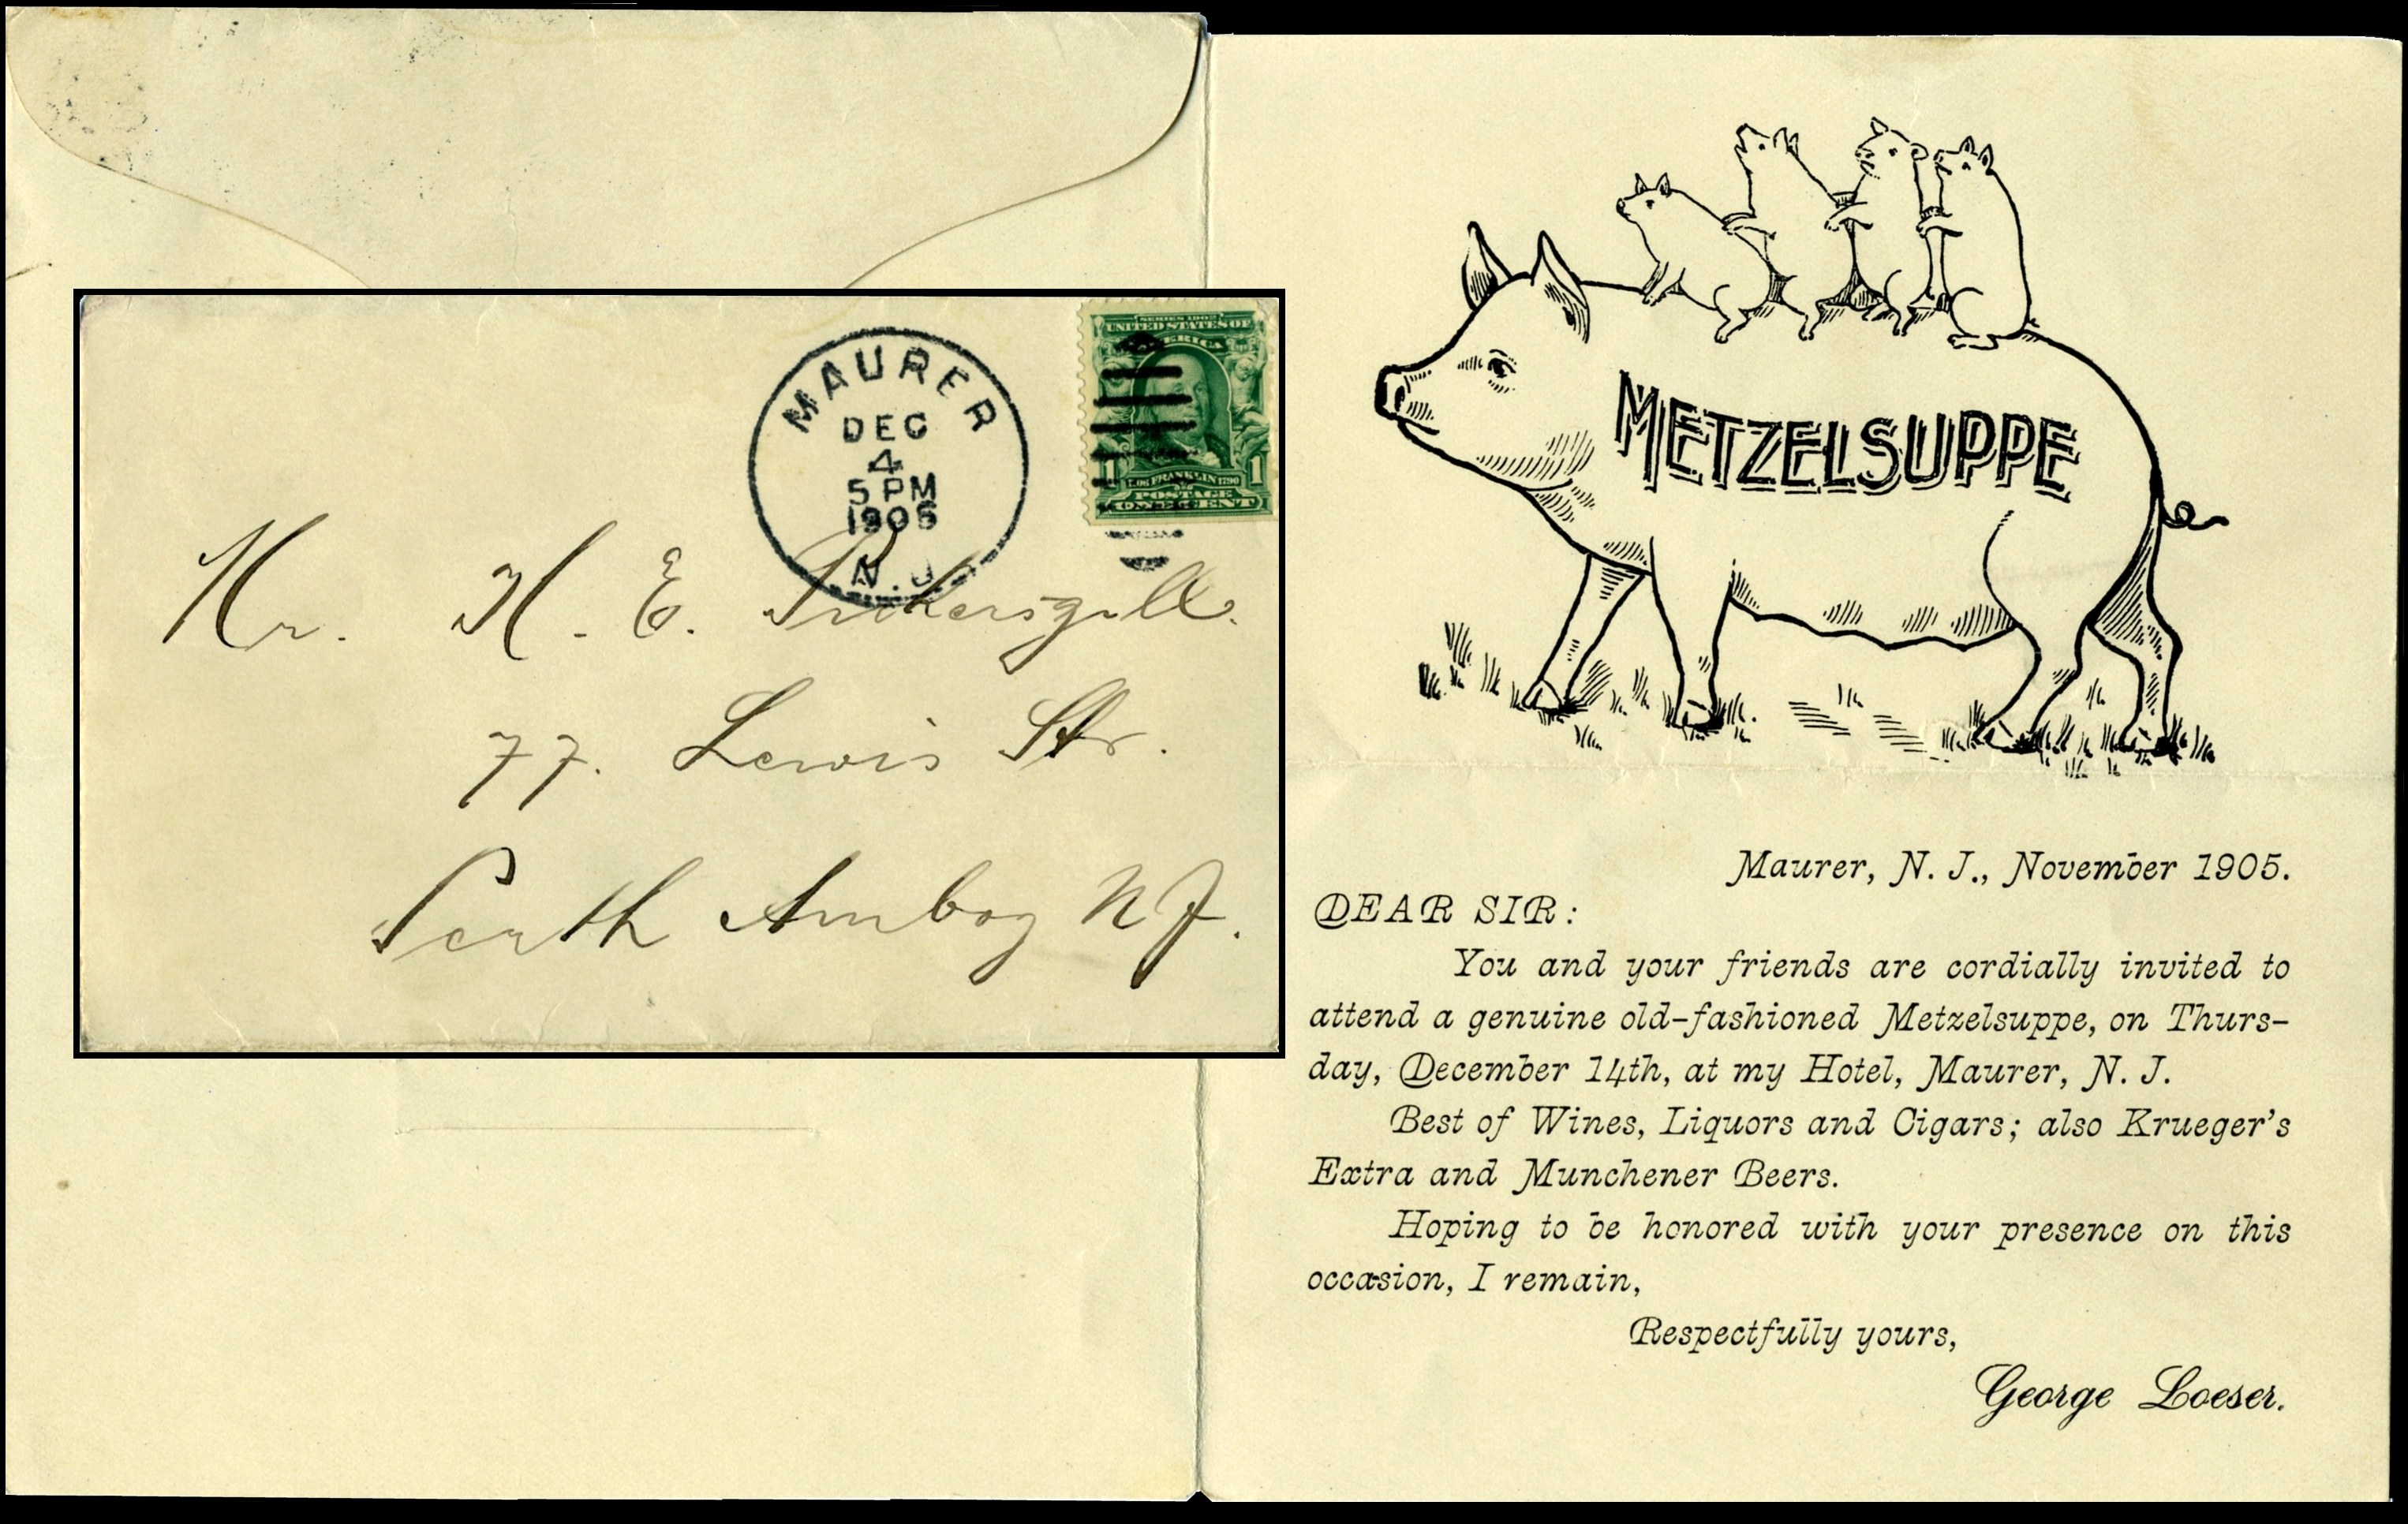 MAURER
DEC
4
5 PM
1905
N.J.
SERIES 1902
UNITED STATES OF
AMERICA
1 FRANKLIN 1790 1
POSTAGE
ONE CENT
Mr. H. E. Pickersgill.
77. Lewis Str.
Perth Amboy NJ.
METZELSUPPE
Maurer, N. J., November 1905.
DEAR SIR:
You and your friends are cordially invited to
attend a genuine old-fashioned Metzelsuppe, on Thurs-
day, December 14th, at my Hotel, Maurer, N. J.
Best of Wines, Liquors and Cigars; also Krueger's
Extra and Munchener Beers.
Hoping to be honored with your presence on this
occasion, I remain,
Respectfully yours,
George Loeser.